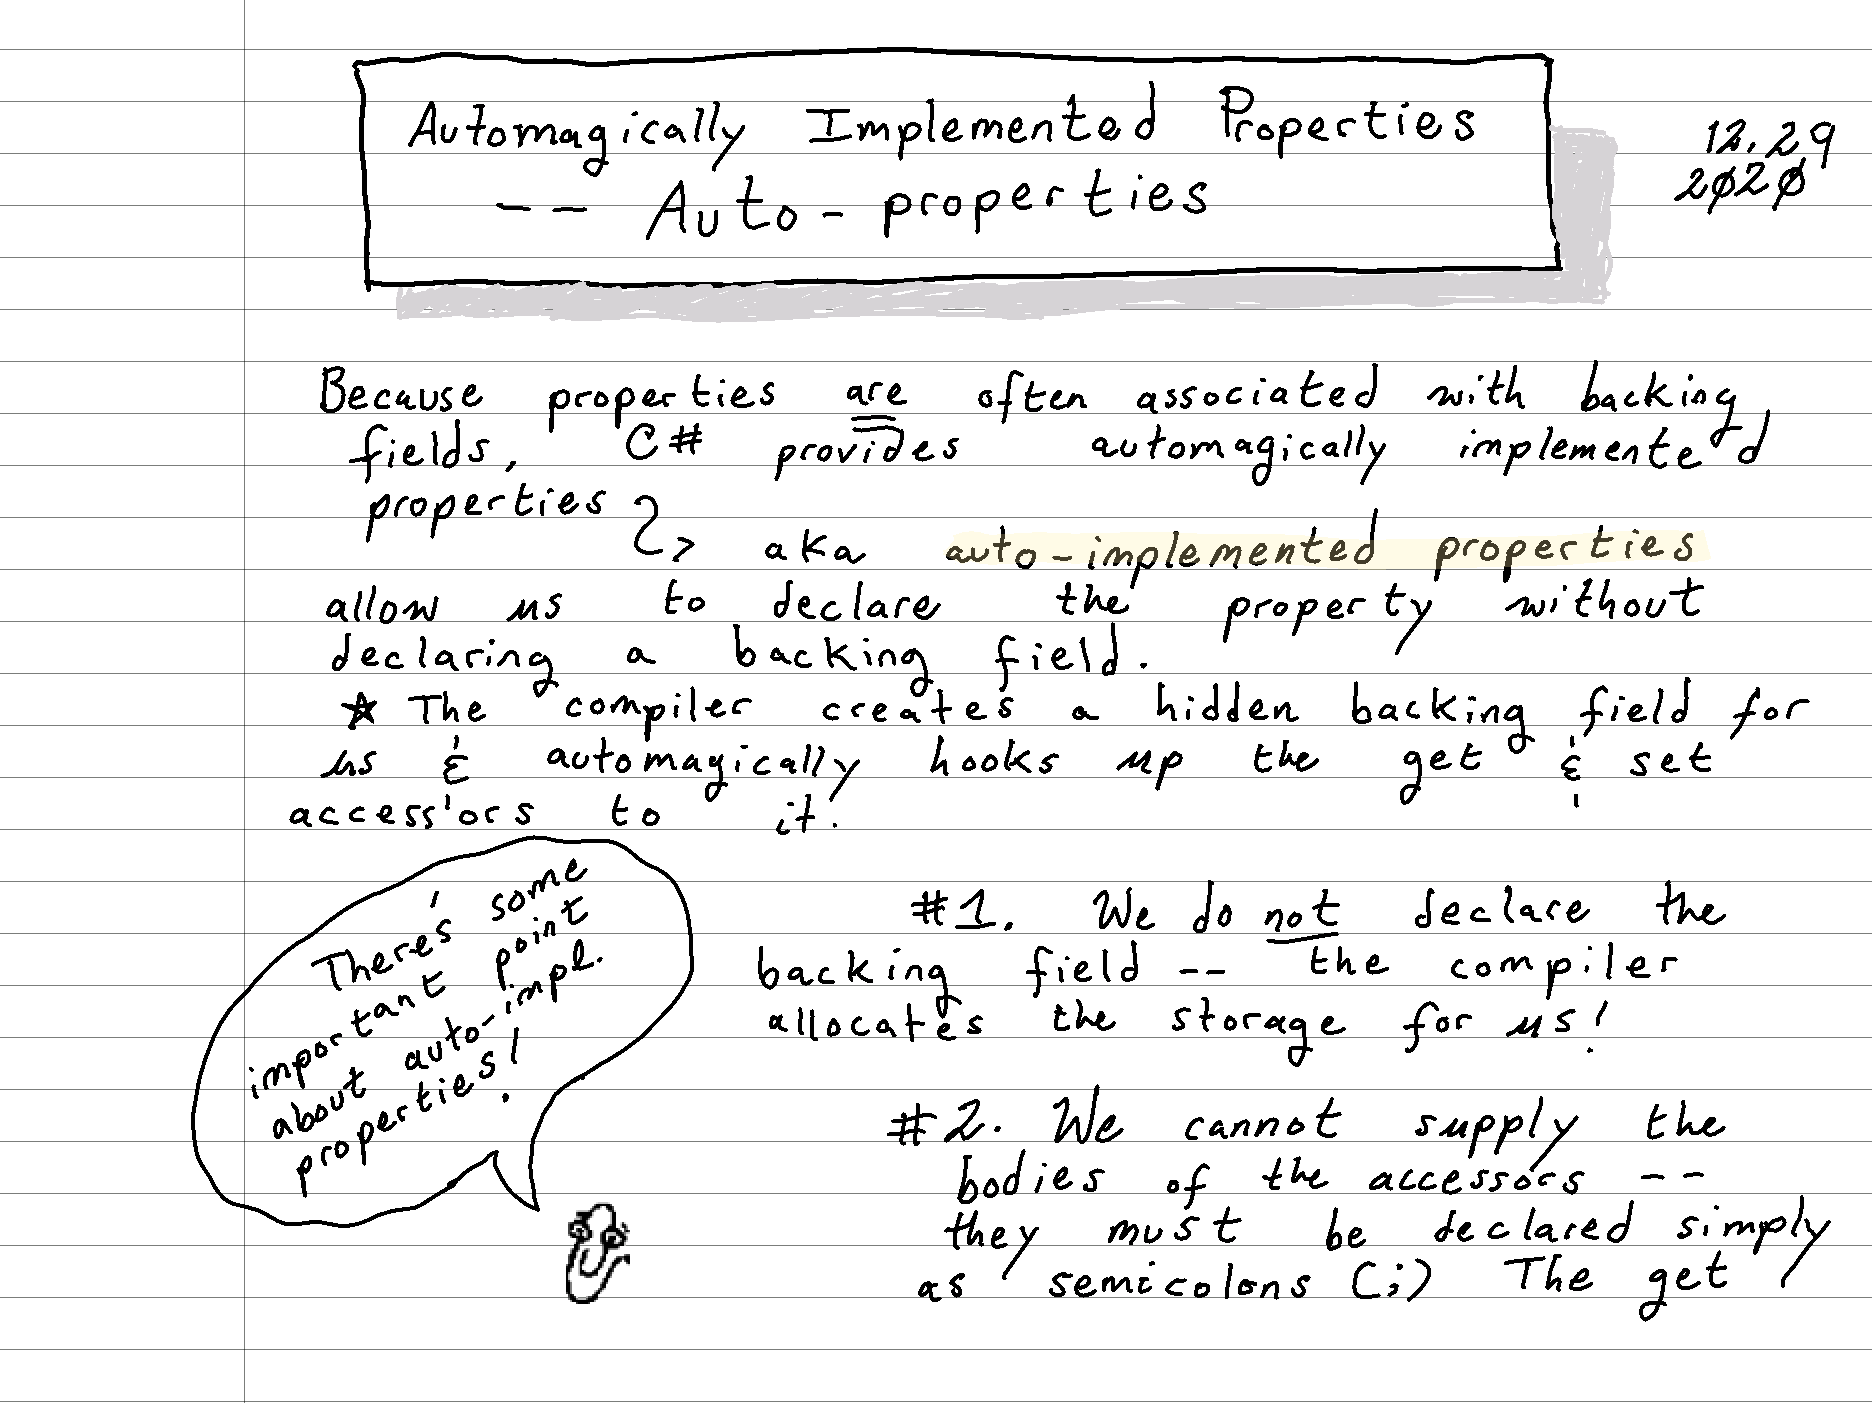 Automagically Implemented Properties
-- Auto-properties
12.29
2020
Because properties are often associated with backing
fields, C# provides automagically implemented
properties
aka auto-implemented properties
allow us to declare the property without
declaring a backing field.
★ The compiler creates a hidden backing field for
us & automagically hooks up the get & set
accessors to it.
There's some
important point
about auto-impl.
properties!
#1. We do not declare the
backing field -- the compiler
allocates the storage for us!
#2. We cannot supply the
bodies of the accessors --
they must be declared simply
as semicolons (;) The get